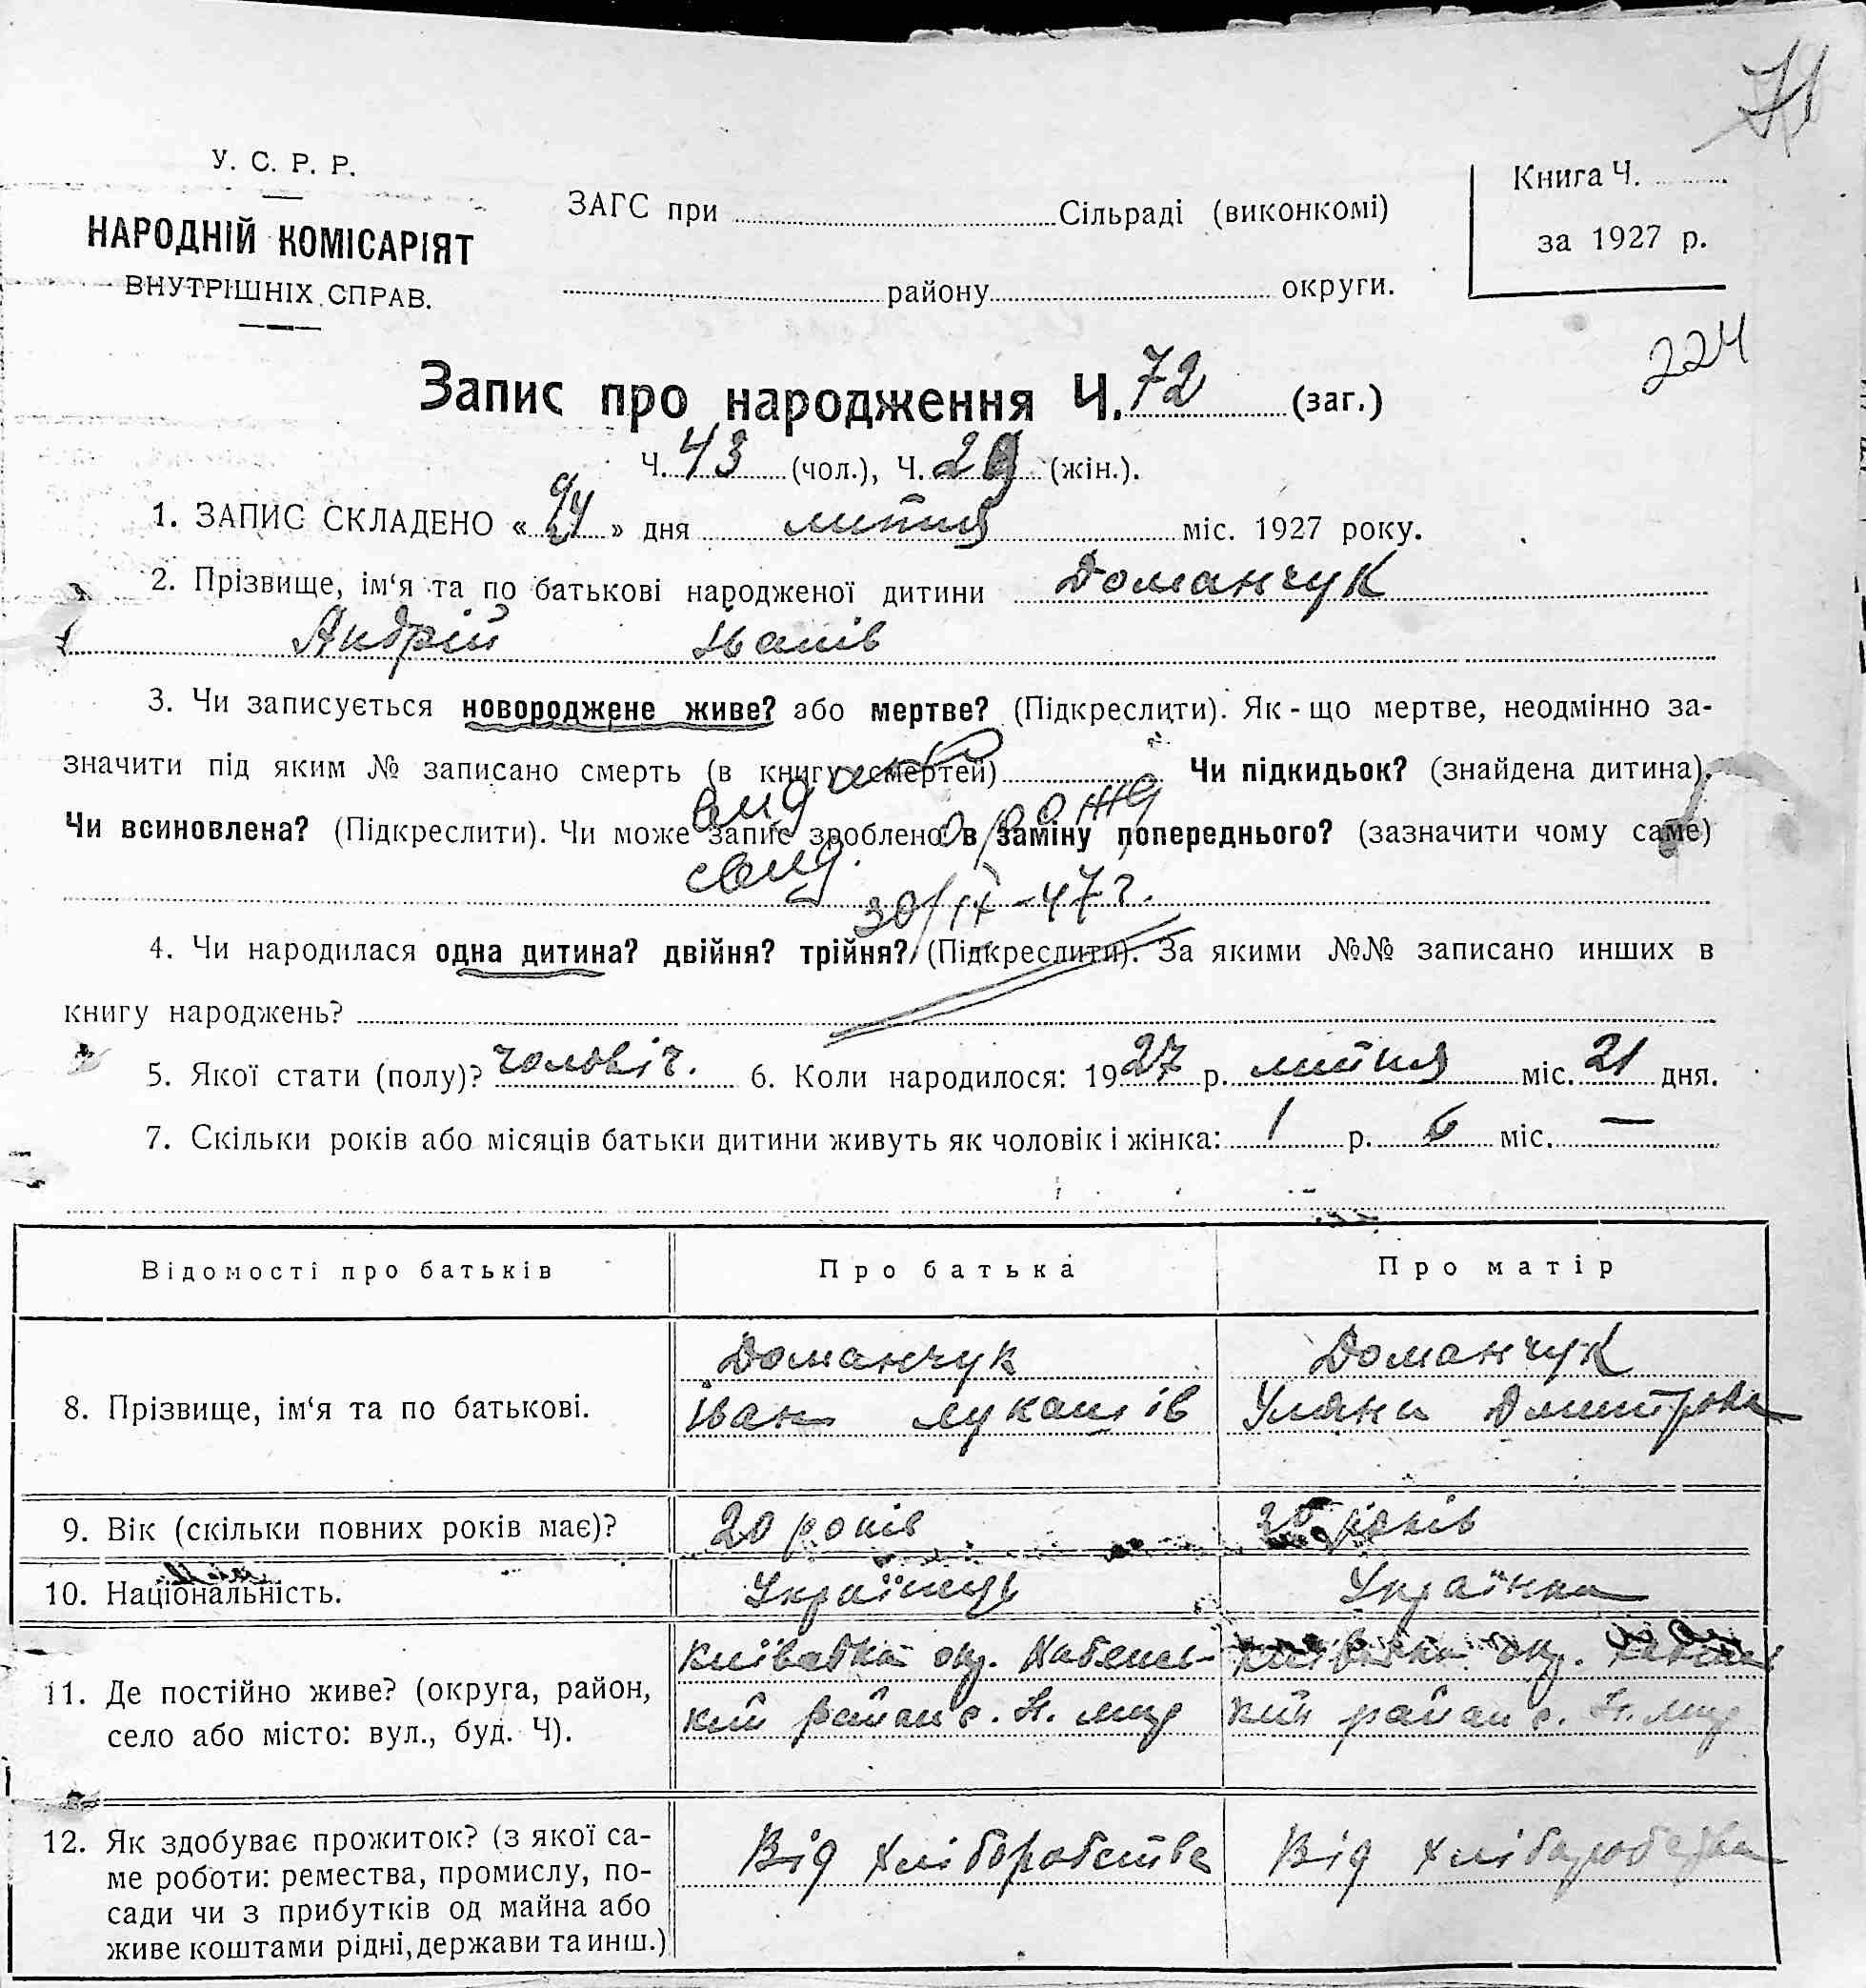 71
У. С. Р. Р.
НАРОДНІЙ КОМІСАРІЯТ
ВНУТРІШНІХ СПРАВ.
ЗАГС при Сільраді (виконкомі)
району округи.
Книга Ч.
за 1927 р.
224
Запис про народження Ч. 72 (заг.)
Ч. 43 (чол.), Ч. 29 (жін.).
1. ЗАПИС СКЛАДЕНО « 24 » дня липня міс. 1927 року.
2. Прізвище, ім‘я та по батькові народженої дитини Доманчук
Андрій Іванів
3. Чи записується новороджене живе? або мертве? (Підкреслити). Як-що мертве, неодмінно за-
значити під яким № записано смерть (в книгу смертей) Чи підкидьок? (знайдена дитина).
Чи всиновлена? (Підкреслити). Чи може запис зроблено в заміну попереднього? (зазначити чому саме)
свид. о рожд
30/IX-47г.
4. Чи народилася одна дитина? двійня? трійня? (Підкреслити). За якими №№ записано инших в
книгу народжень?
5. Якої стати (полу)? чоловіч. 6. Коли народилося: 1927 р. липня міс. 21 дня.
7. Скільки років або місяців батьки дитини живуть як чоловік і жінка: 1 р. 6 міс. —
Відомості про батьків Про батька Про матір
8. Прізвище, ім‘я та по батькові.
Доманчук
Іван Лукашів
Доманчук
Уляна Дмитрова
9. Вік (скільки повних років має)? 20 років 20 років
10. Національність. Українець Українка
11. Де постійно живе? (округа, район,
село або місто: вул., буд. Ч).
Київська окр. Хабенсь-
кий район с. Н. Мир
Київська окр. Хабенсь
кий район с. Н. Мир
12. Як здобуває прожиток? (з якої са-
ме роботи: ремества, промислу, по-
сади чи з прибутків од майна або
живе коштами рідні, держави та инш.)
Від хліборобства
Від хліборобства